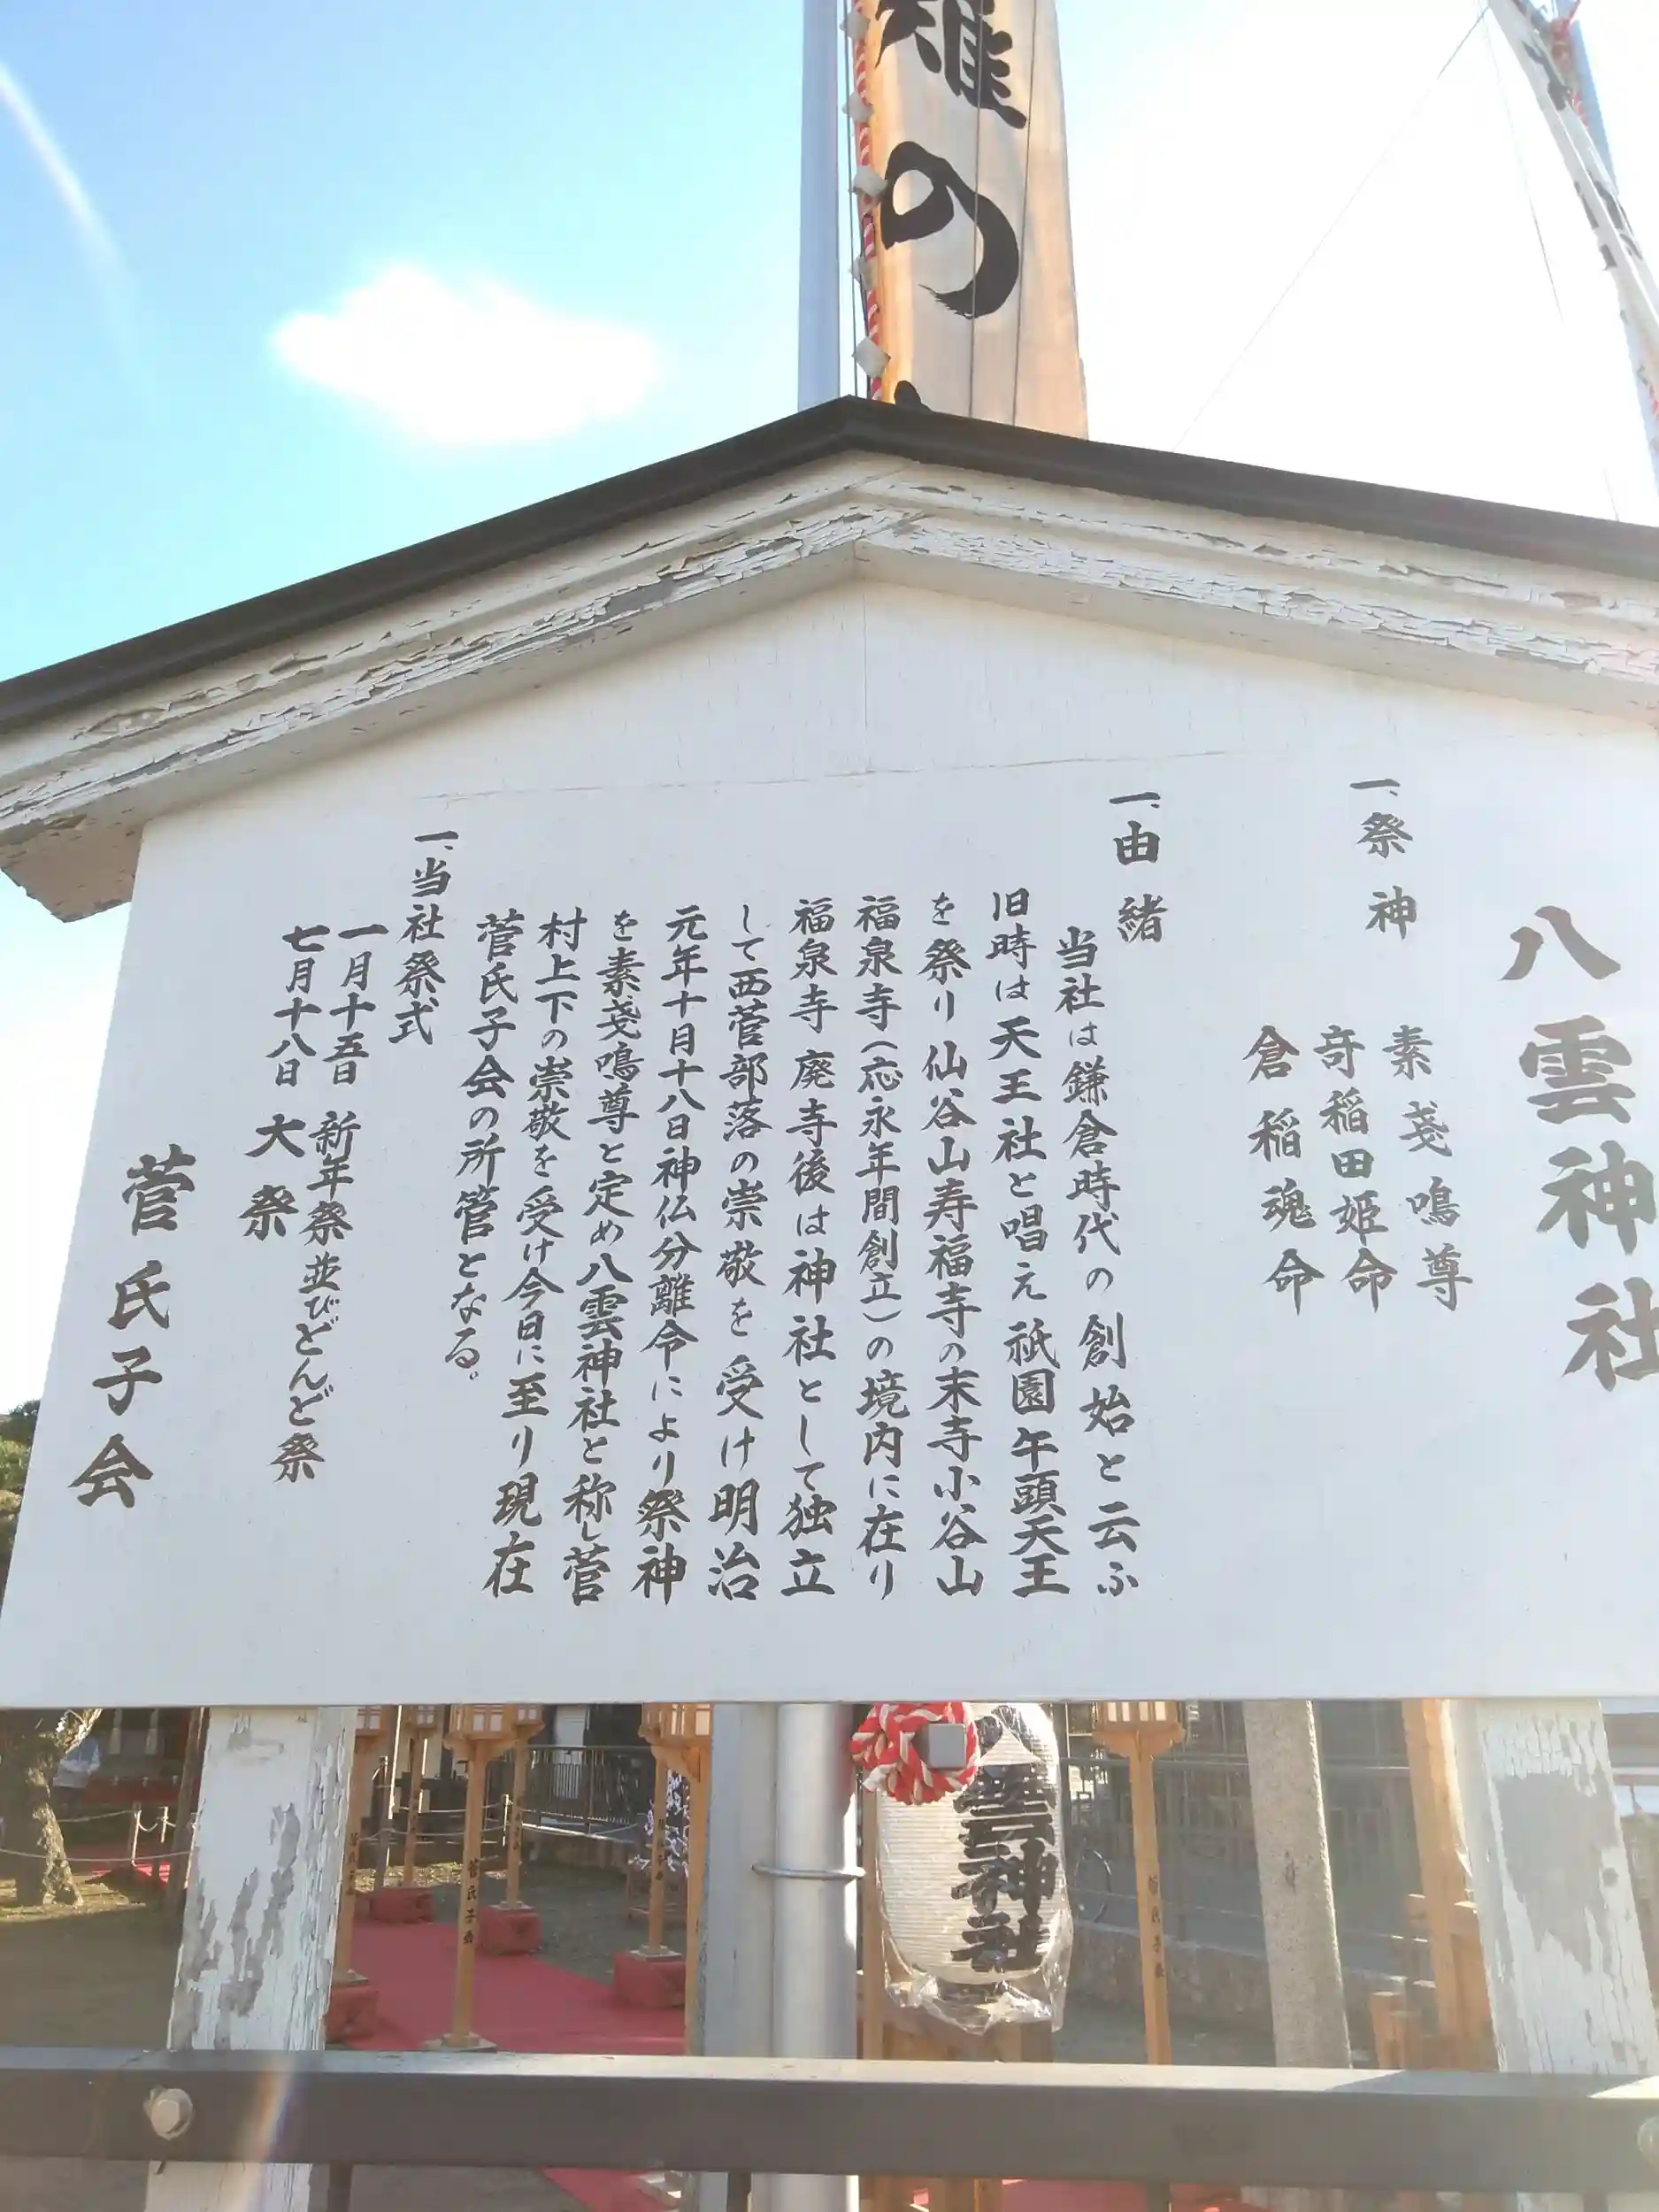 雛の
八雲神社
一、祭神
素戔鳴尊
奇稲田姫命
倉稲魂命
一、由緒
当社は鎌倉時代の創始と云ふ
旧時は天王社と唱え祇園午頭天王
を祭り仙谷山寿福寺の末寺小谷山
福泉寺(応永年間創立)の境内に在り
福泉寺廃寺後は神社として独立
して西菅部落の崇敬を受け明治
元年十月十八日神仏分離令により祭神
を素戔鳴尊と定め八雲神社と称し菅
村上下の崇敬を受け今日に至り現在
菅氏子会の所管となる。
一、当社祭式
一月十五日 新年祭並びどんど祭
七月十八日 大祭
菅氏子会
八雲神社
菅氏子会